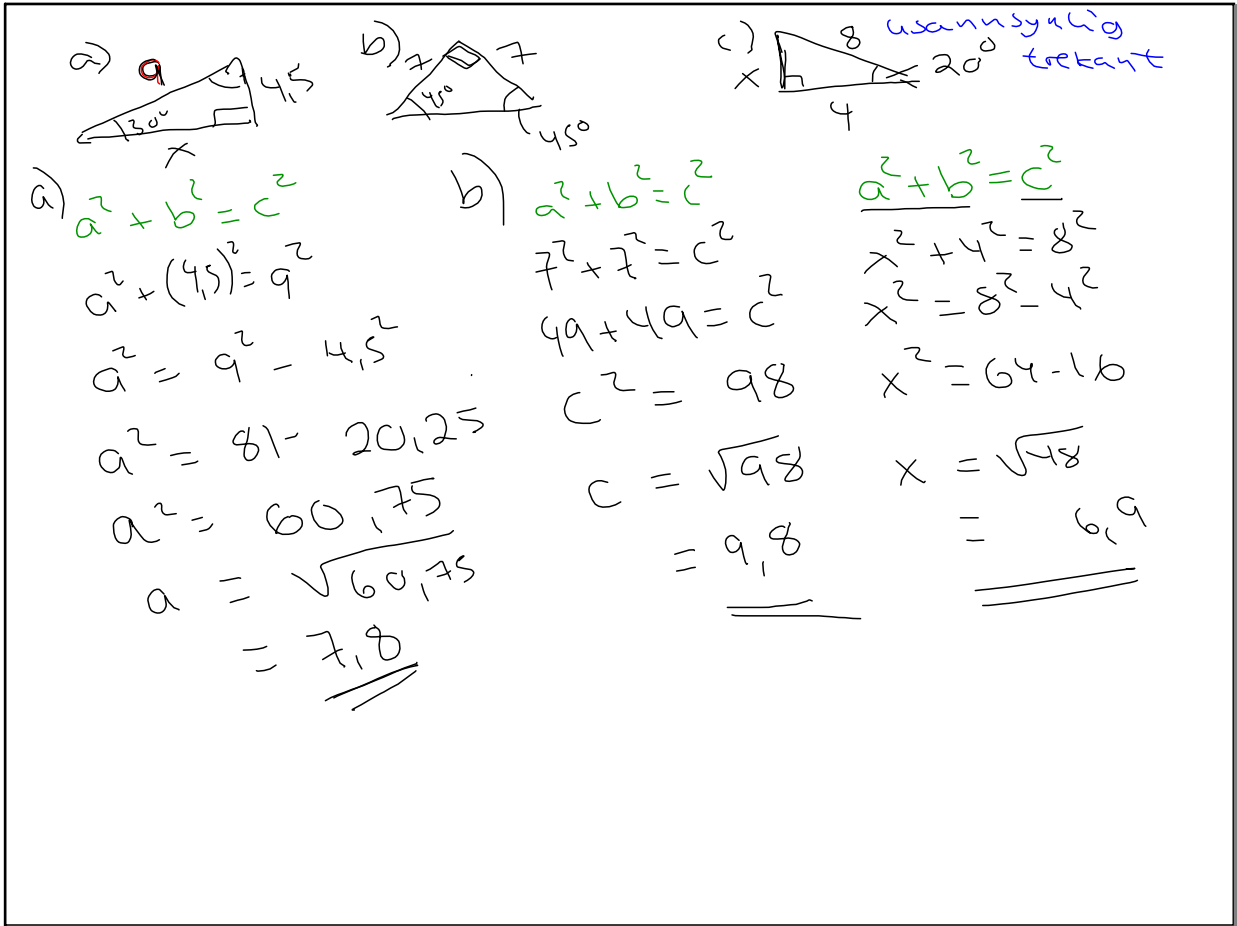 a) 9 4,5
30°
x
b) 7 7
45°
45°
c) 8 usannsynlig
x 20° trekant
4
a)
a² + b² = c²
a² + (4,5)² = 9²
a² = 9² - 4,5²
a² = 81 - 20,25
a² = 60,75
a = √60,75
= 7,8
b)
a² + b² = c²
7² + 7² = c²
49 + 49 = c²
c² = 98
c = √98
= 9,8
a² + b² = c²
x² + 4² = 8²
x² = 8² - 4²
x² = 64 - 16
x = √48
= 6,9